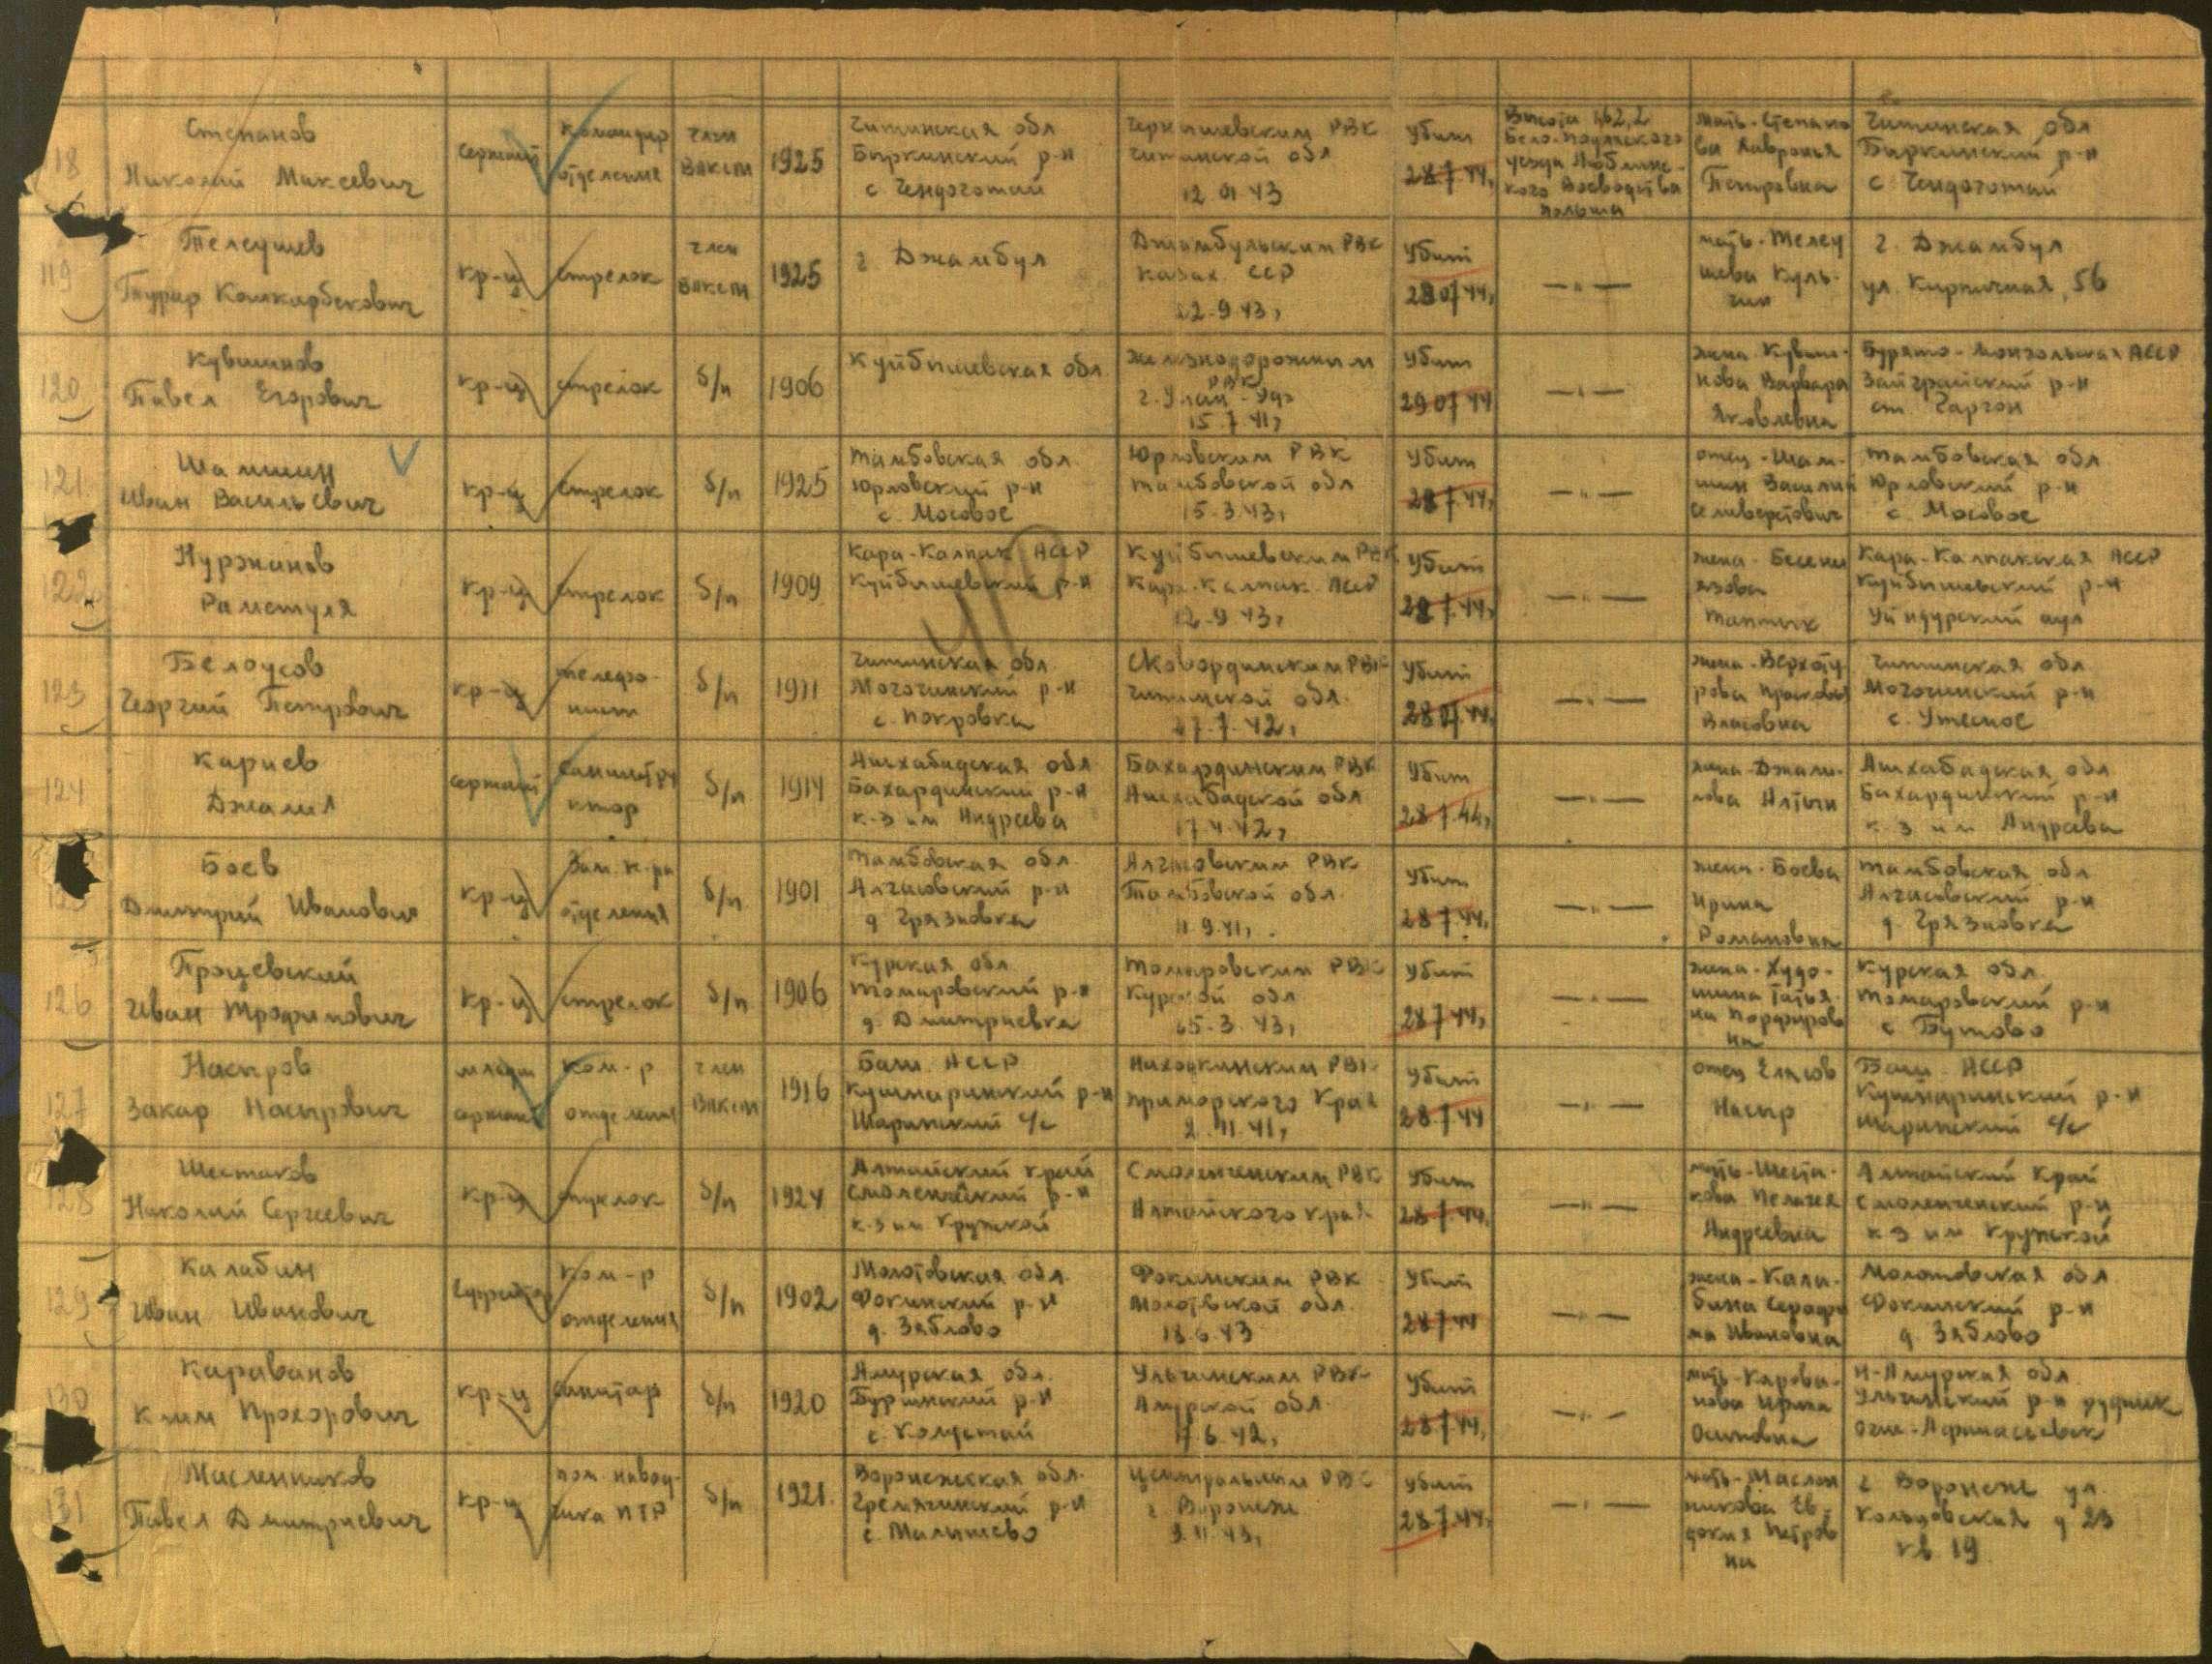 118
Степанов
Николай Моисевич
сержант
командир
отделения
член
ВЛКСМ
1925
Читинская обл
Быркинский р-н
с Чендоготай
Чернышевским РВК
Читинской обл
12 01 43
Убит
28 7 44,
Высота 462,2
Бело-Подляского
уезда Люблинс-
кого Воеводства
Польша
мать-Степано
ва
Петровна
Читинская обл
Быркинский р-н
с Чендоготай
119
Телеушев
кр-ц
стрелок
член
ВЛКСМ
1925
г Джамбул
Джамбульским РВК
Казах. ССР
22.9 43,
Убит
28 07 44,
—"—
мать-Телеу
шева Куль-
г. Джамбул
ул. Кирпичная, 56
120
Кувшинов
Павел Егорович
кр-ц
стрелок
б/п
1906
Куйбышевская обл.
Железнодорожным
РВК
г. Улан-Удэ
15.7 41,
Убит
29 07 44
—"—
жена Кувши-
нова Варвара
Яковлевна
Бурято-Монгольская АССР
р-н
ст.
121
Шамшин
Иван Васильевич
кр-ц
стрелок
б/п
1925
Тамбовская обл.
Юрловский р-н
с. Мосовое
Юрловским РВК
Тамбовской обл
15.3.43,
Убит
28 7.44,
—"—
отец-Шам-
шин Василий
Селиверстович
Тамбовская обл
Юрловский р-н
с. Мосовое
122
Нуржанов
кр-ц
стрелок
б/п
1909
Кара-Калпак АССР
Куйбышевский р-н
Куйбышевским РВК
Кара-Калпак АССР
12.9 43,
Убит
28 7.44,
—"—
жена-Бесени
язова
Кара-Калпакская АССР
Куйбышевский р-н
Уйгурский аул
123
Белоусов
Георгий Петрович
кр-ц
телефо-
нист
б/п
1911
Читинская обл
Могочинский р-н
с. Покровка
Сковородинским РВК
Читинской обл.
27.7.42,
Убит
28 07 44,
—"—
жена-Верхоту
рова Прасковья
Власовна
Читинская обл
Могочинский р-н
с. Утесное
124
Кариев
Джамал
сержант
санинстру
ктор
б/п
1914
Ашхабадская обл
Бахардинский р-н
к-з им Андреева
Бахардинским РВК
Ашхабадской обл
17 4.42,
Убит
28 7.44,
—"—
жена-Джама-
лова Алтын
Ашхабадская обл
Бахардинский р-н
к-з им Андреева
Боев
Дмитрий Иванович
кр-ц
Зам. к-ра
отделения
б/п
1901
Тамбовская обл
Алгасовский р-н
д Грязновка
Алгасовским РВК
Тамбовской обл.
11 9.41,
Убит
28 7 44,
—"—
жена-Боева
Ирина
Романовна
Тамбовская обл
Алгасовский р-н
д. Грязновка
126
Иван Трофимович
кр-ц
стрелок
б/п
1906
Курская обл
Томаровский р-н
д. Дмитриевка
Томаровским РВК
Курской обл
Убит
28 7 44,
—"—
жена-Худо-
шина Татья-
на Порфиров
на
Курская обл.
Томаровский р-н
с Бутово
127
Насыров
Закар Насырович
младш
сержант
ком-р
отделения
член
ВЛКСМ
1916
Баш АССР
Кушнаринский р-н
Шаринский с/с
Находкинским РВК
Приморского Края
2.11.41,
Убит
28.7.44
—"—
отец
Насыр
Баш. АССР
Кушнаринский р-н
Шаринский с/с
128
Шестаков
Николай Сергеевич
кр-ц
стрелок
б/п
1924
Алтайский край
Смоленский р-н
к-з им Крупской
Смоленским РВК
Алтайского края
Убит
28 7 44,
—"—
мать-Шеста-
кова Пелагея
Андреевна
Алтайский Край
Смоленский р-н
к-з им Крупской
129
Калабин
Иван Иванович
Ефрейтор
ком-р
отделения
б/п
1902
Молотовская обл.
Фокинский р-н
д. Зяблово
Фокинским РВК
Молотовской обл.
18.6 43
Убит
28 7 44
—"—
жена-Кала-
бина Серафи
ма Ивановна
Молотовская обл
Фокинский р-н
д. Зяблово
130
Караванов
Клим Прохорович
кр-ц
санитар
б/п
1920
Амурская обл.
р-н
Ульчинским РВК
Амурской обл.
17.6.42,
Убит
28 7.44,
—"—
мать-Карава-
нова Ирина
Осиповна
Н-Амурская обл.
Ульчинский р-н рудник
131
Масленников
Павел Дмитриевич
кр-ц
пом. навод-
чика ПТР
б/п
1921.
Воронежская обл.
Гремяченский р-н
с. Малышево
Центральным РВК
г. Воронеж
Убит
28.7.44,
—"—
мать-Маслен
никова Ев-
докия Петров
на
г Воронеж ул.
Кольцовская д 23
кв 19